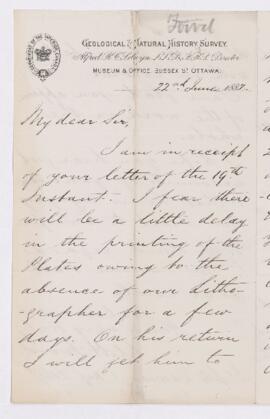 Foord
GEOLOGICAL & NATURAL HISTORY SURVEY.
Alfred R. C. Selwyn, L.L.D., F.R.S. Director
MUSEUM & OFFICE, SUSSEX ST OTTAWA.
22nd June 1883.
My dear Sir,
I am in receipt
of your letter of the 19th
Instant. I fear there
will be a little delay
in the printing of the
Plates owing to the
absence of our Litho-
-grapher for a few
days. On his return
I will get him to